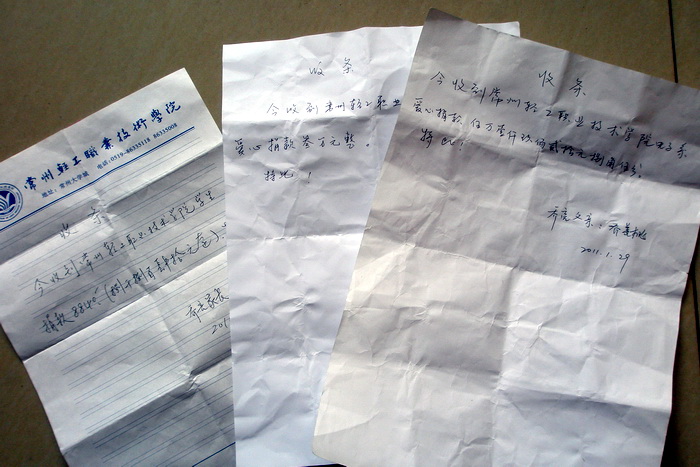 常州轻工職業技術學院
地址：常州大学城 电话：0519-86335118 86335008
收条
今收到常州轻工职业技术学院学生
捐款8840.(捌仟捌百肆拾元整)
齐亮家长
201
收条
今收到常州轻工职业
爱心捐款叁万元整。
特此！
收条
今收到常州轻工职业技术学院电子系
爱心捐款伍万
特此！
齐亮父亲：齐
2011.1.29